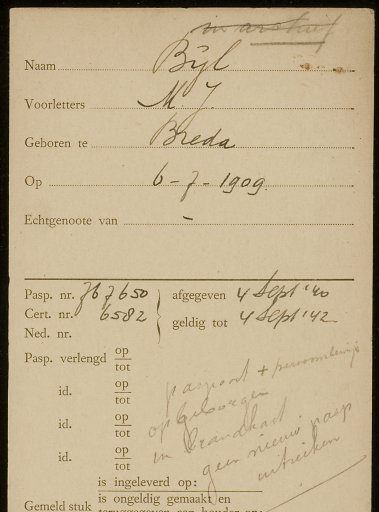 in archief
Naam Bijl
Voorletters M. J.
Geboren te Breda
Op 6-7-1909
Echtgenoote van -
Pasp. nr. 767650 afgegeven 4 Sept '40
Cert. nr. 6582 geldig tot 4 Sept '42
Ned. nr.
Pasp. verlengd op
tot
id. op
tot
id. op
tot
id. op
tot
paspoort + persoonsbewijs
opgeborgen
in brandkast.
geen nieuw pasp
uitreiken
is ingeleverd op:
Gemeld stuk is ongeldig gemaakt en
teruggegeven aan houder op: